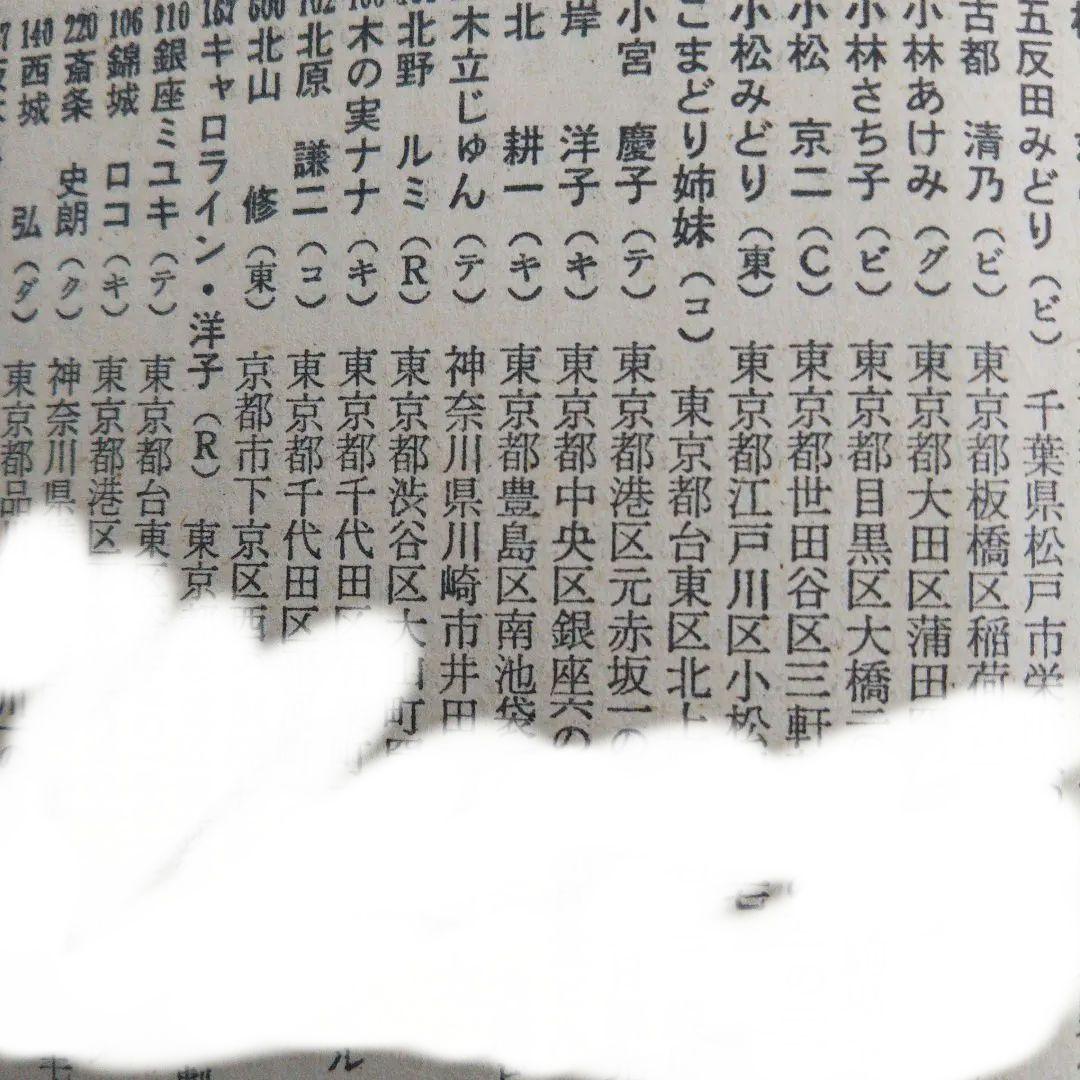 五反田みどり（ビ） 千葉県松戸市栄
古都 清乃（ビ） 東京都板橋区稲荷
小林あけみ（グ） 東京都大田区蒲田
小林さち子（ビ） 東京都目黒区大橋
小松 京二（C） 東京都世田谷区三軒
小松みどり（東） 東京都江戸川区小松
こまどり姉妹（コ） 東京都台東区北上
小宮 慶子（テ） 東京都港区元赤坂一の
岸 洋子（キ） 東京都中央区銀座六の
北 耕一（キ） 東京都豊島区南池袋
木立じゅん（テ） 神奈川県川崎市井田
北野 ルミ（R） 東京都渋谷区大
木の実ナナ（キ） 東京都千代田区
102 北原 謙二（コ） 東京都千代田区
600 北山 修（東） 京都市下京区西
167 キャロライン・洋子（R） 東京
110 銀座ミユキ（テ） 東京都台東
106 錦城 ロコ（キ） 東京都港区
220 斎条 史朗（ク） 神奈川県
140 西城 弘（ダ） 東京都品